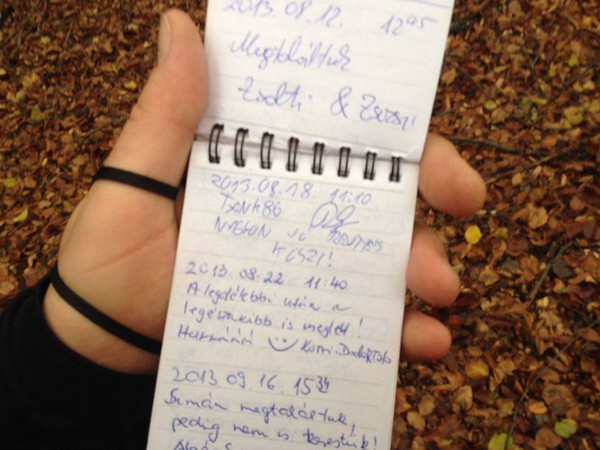 2013.08.12. 12⁴⁵
Megtaláltuk
Zsolti & Zsuzsi
2013.08.18. 11:10
TXNH86
NAGYON
KÖSZI!
2013 08.22 11:40
A legdélebbi után a
legészakibb is meglett!
Hurrááá :)
2013 09.16. 15³⁴
Simán megtaláltuk,
pedig nem is kerestük!